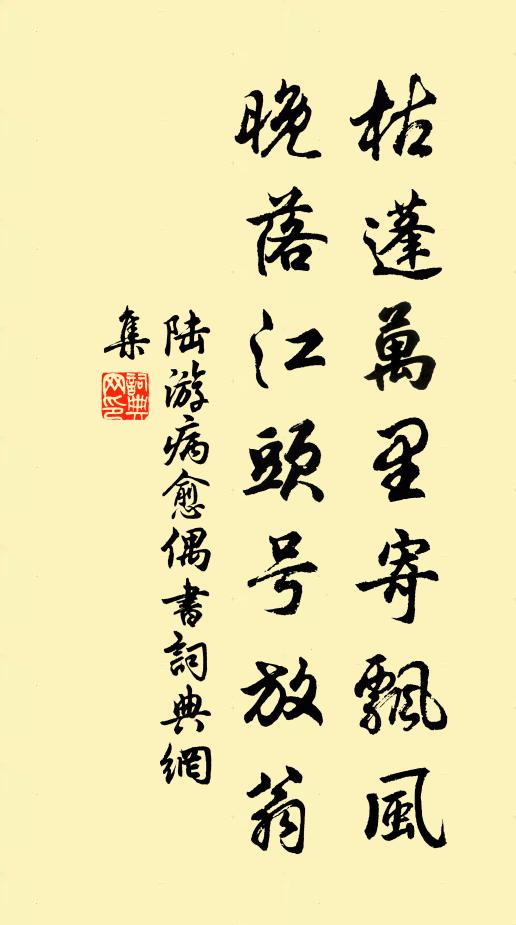 枯蓬萬里寄飄風
晚落江頭号放翁
陆游病愈偶書詞典網
集
詞典网印